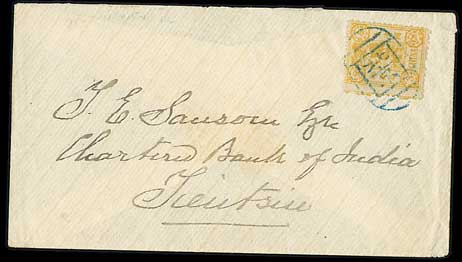 T. E. Sansom Esq
Chartered Bank of India
Tientsin